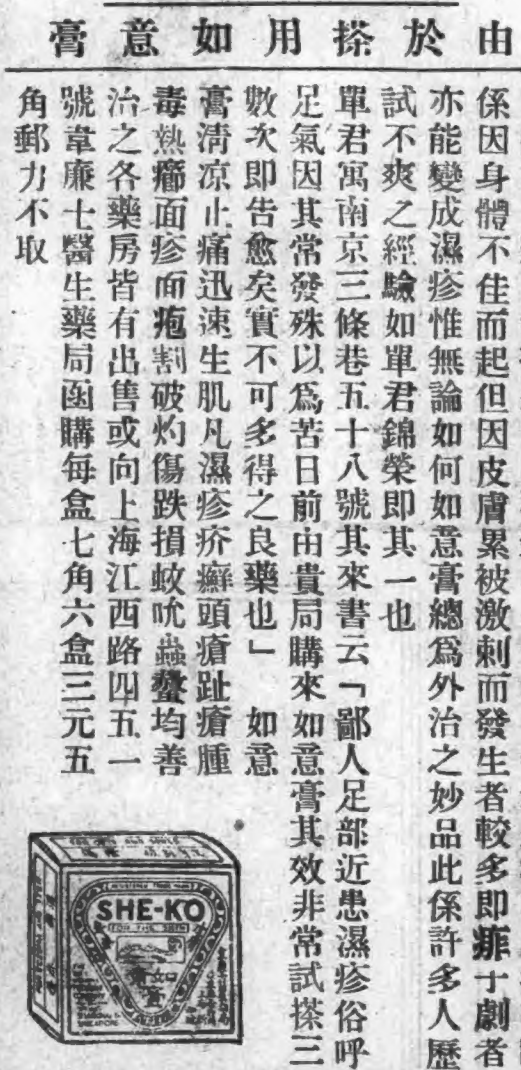 由於搽用如意膏
係因身體不佳而起但因皮膚累被激刺而發生者較多即痱子劇者
亦能變成濕疹惟無論如何如意膏總爲外治之妙品此係許多人歷
試不爽之經驗如單君錦榮即其一也
單君寓南京三條巷五十八號其來書云「鄙人足部近患濕疹俗呼
足氣因其常發殊以爲苦日前由貴局購來如意膏其效非常試搽三
數次即告愈矣實不可多得之良藥也」如意
膏清凉止痛迅速生肌凡濕疹疥癬頭瘡趾瘡腫
毒熱癤面疹面疱割破灼傷跌損蚊吮蟲螫均善
治之各藥房皆有出售或向上海江西路四五一
號韋廉士醫生藥局函購每盒七角六盒三元五
角郵力不取
SHE-KO
FOR THE SKIN